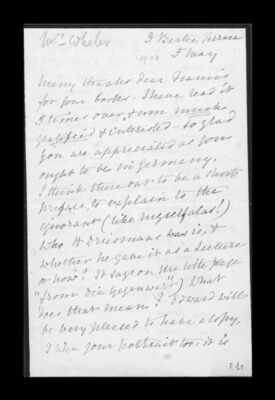 Mrs Wheler
3 Bertie Terrace
1903
5 May
Many thanks dear Francis
for your book. I have read it
3 times over, & am much
& interested - so glad
you are appreciated as you
ought to be in Germany.
I think there out to be a short
Preface, to explain to the
ignorant (like myself alas!)
who H Driesmans was, &
whether he gave it as a lecture
or how? It says on the title page
"from Die Gegenwart") What
does that mean? Edward will
be very pleased to have a copy.
I like your portrait too, it is